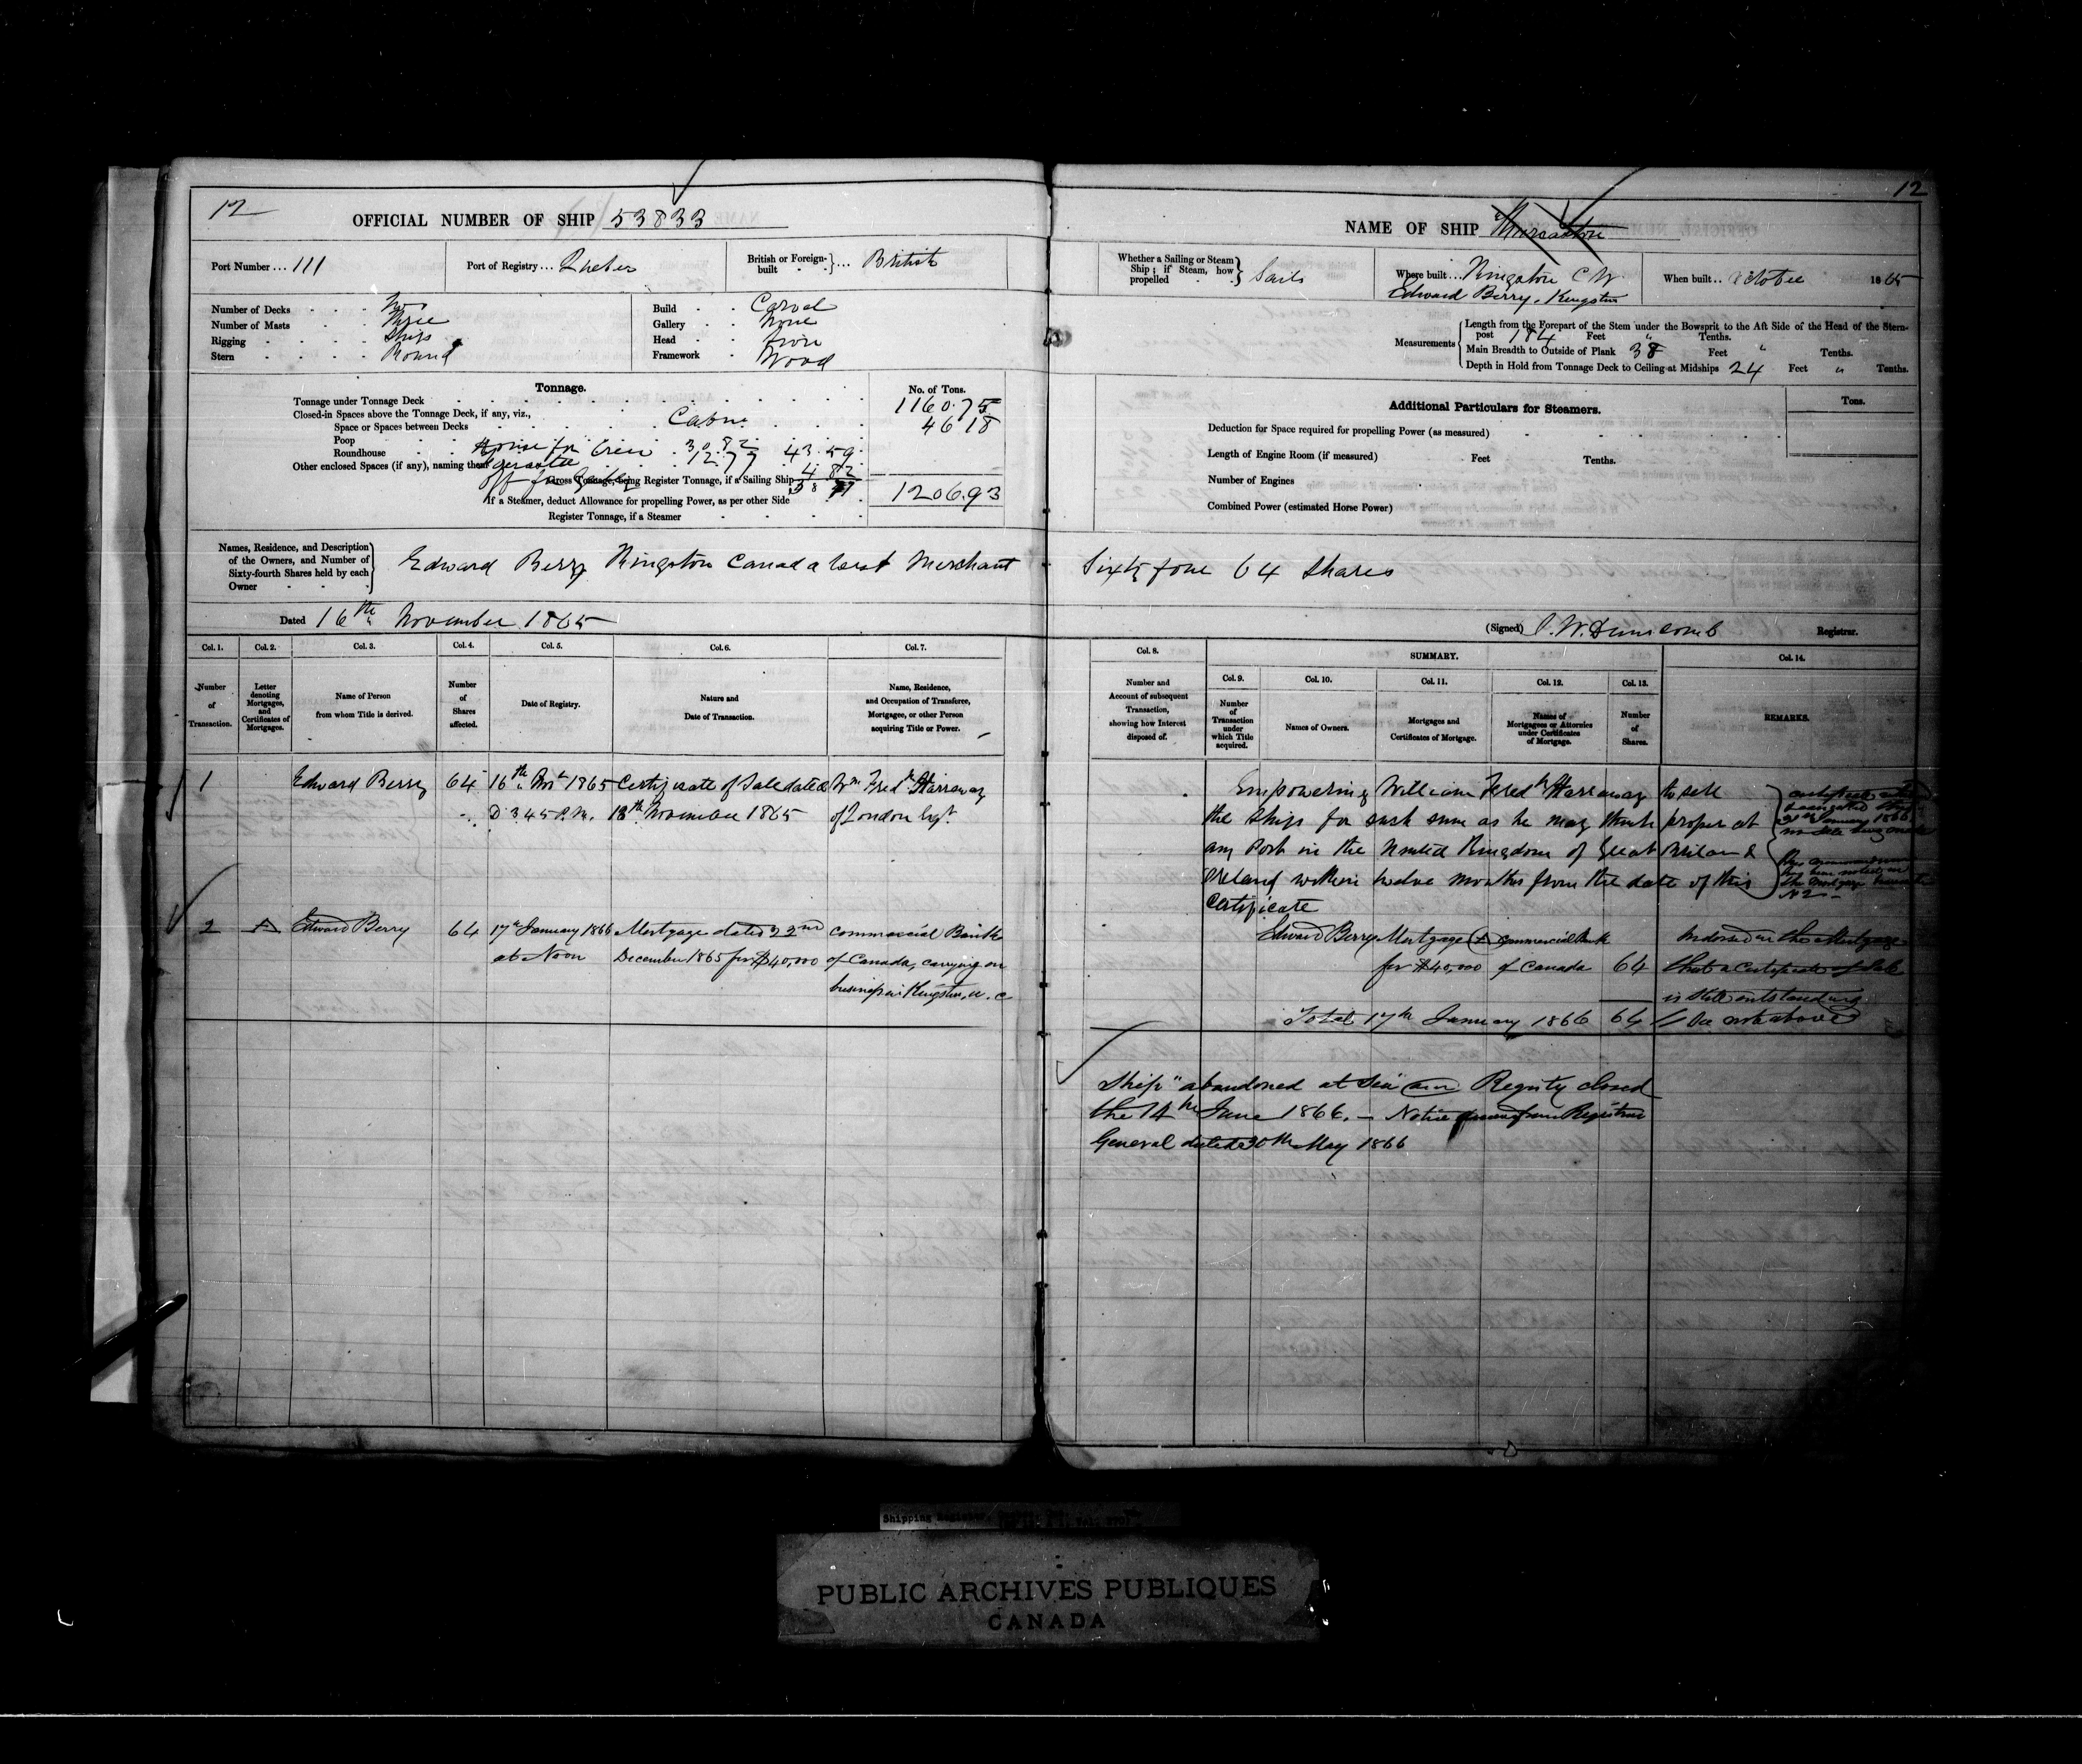 12
12
OFFICIAL NUMBER OF SHIP 53833
NAME OF SHIP
Port Number... 111
Port of Registry... Quebec
British or Foreign-built } ... British
Whether a Sailing or Steam Ship; if Steam, how propelled } Sails
Where built... Kingston C W
Edward Berry, Kingston
When built.. October 1865
Number of Decks Two
Number of Masts Three
Rigging Ship
Stern Round
Build Carvel
Gallery None
Head
Framework Wood
Measurements
Length from the Forepart of the Stem under the Bowsprit to the Aft Side of the Head of the Stern-
post 184 Feet " Tenths.
Main Breadth to Outside of Plank 38 Feet " Tenths.
Depth in Hold from Tonnage Deck to Ceiling at Midships 24 Feet " Tenths.
Tonnage.
No. of Tons.
Tonnage under Tonnage Deck 1160.75
Closed-in Spaces above the Tonnage Deck, if any, viz.,
Space or Spaces between Decks Cabin 46 18
Poop
Roundhouse House for Crew 30.82
Other enclosed Spaces (if any), naming them 12.77 43.59
off for 4 82
Gross Tonnage, being Register Tonnage, if a Sailing Ship 38 77
If a Steamer, deduct Allowance for propelling Power, as per other Side 1206.93
Register Tonnage, if a Steamer
Additional Particulars for Steamers.
Tons.
Deduction for Space required for propelling Power (as measured)
Length of Engine Room (if measured) Feet Tenths.
Number of Engines
Combined Power (estimated Horse Power)
Names, Residence, and Description of the Owners, and Number of Sixty-fourth Shares held by each Owner
Edward Berry Kingston Canada West Merchant Sixty four 64 Shares
Dated 16th November 1865
(Signed) Dunscomb Registrar.
Col. 1. Col. 2. Col. 3. Col. 4. Col. 5. Col. 6. Col. 7.
Number of Transaction.
Letter denoting Mortgages, and Certificates of Mortgages.
Name of Person from whom Title is derived.
Number of Shares affected.
Date of Registry.
Nature and Date of Transaction.
Name, Residence, and Occupation of Transferee, Mortgagee, or other Person acquiring Title or Power.
Col. 8. SUMMARY. Col. 14.
Col. 9. Col. 10. Col. 11. Col. 12. Col. 13.
Number and Account of subsequent Transaction, showing how Interest disposed of.
Number of Transaction under which Title acquired.
Names of Owners.
Mortgages and Certificates of Mortgage.
Names of Mortgagees or Attornies under Certificates of Mortgage.
Number of Shares.
REMARKS.
1 Edward Berry 64 16th Novr 1865 Certificate of Sale dated Wm Fredk Harraway
3.45 P.M. November 1865 of London
Empowering William Fredk Harraway to sell
the Ship for such sum as he may think proper at
any Port in the United Kingdom of Great Britain &
Ireland within twelve months from the date of this
Certificate
2 A Edward Berry 64 17th January 1866 Mortgage dated 22nd Commercial Bank
at Noon December 1865 for $40,000 of Canada, carrying on
business in Kingston, U. C
Edward Berry Mortgage (A) Commercial Bank
for $40,000 of Canada 64
Endorsed on the Mortgage
that a Certificate of Sale
is still outstanding
See note above
Total 17th January 1866 64
Ship "abandoned at Sea" Registry closed
the 14th June 1866. — Notice from Registrar
General dated 30th May 1866
PUBLIC ARCHIVES PUBLIQUES
CANADA